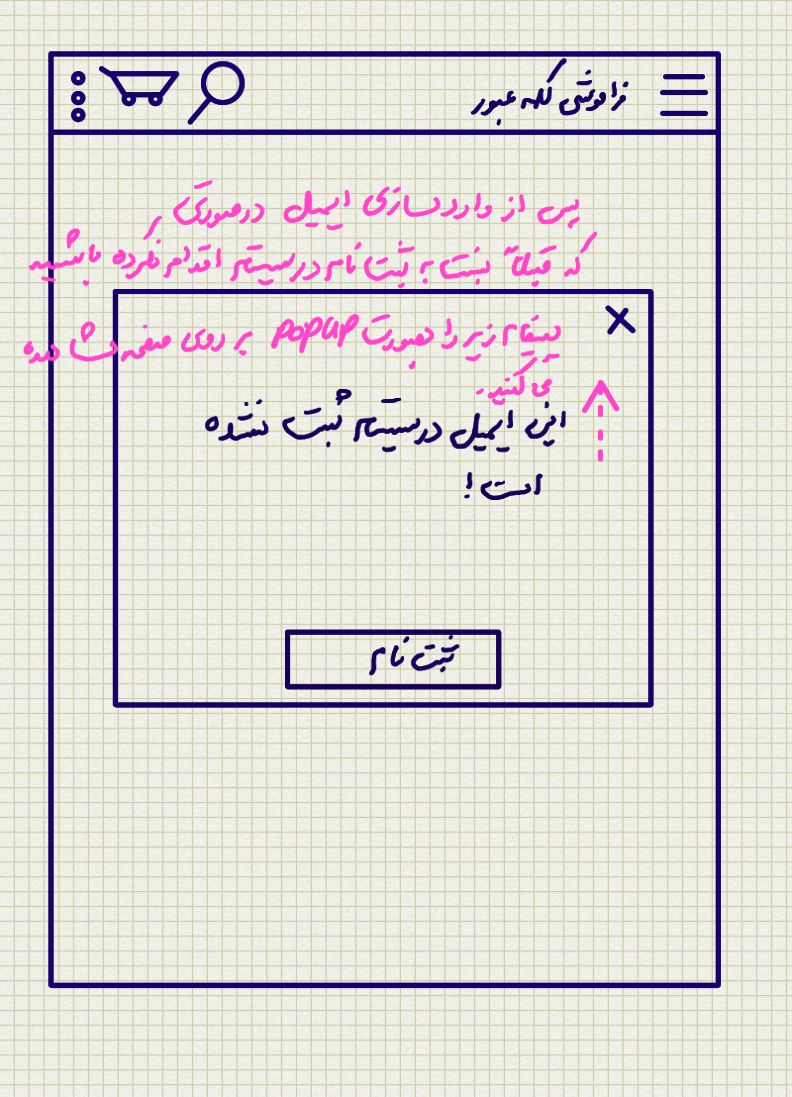 فراموشی کلمه عبور
پس از واردسازی ایمیل درصورتی
که قبلاً نسبت به ثبت نام در سیستم اقدام نکرده باشید
پیغام زیر را بصورت POPUP بر روی صفحه مشاهده
می کنید.
این ایمیل در سیستم ثبت نشده
است!
ثبت نام